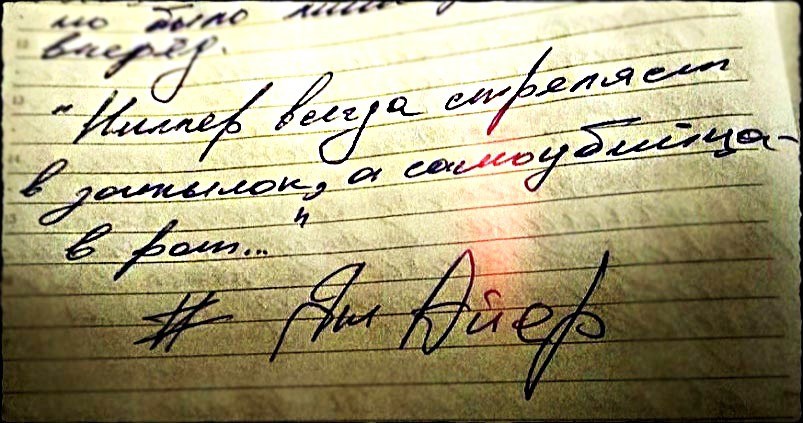 но было
вперёд.
"Киллер всегда стреляет
в затылок, а самоубийца-
в рот..."
# Ян Айер